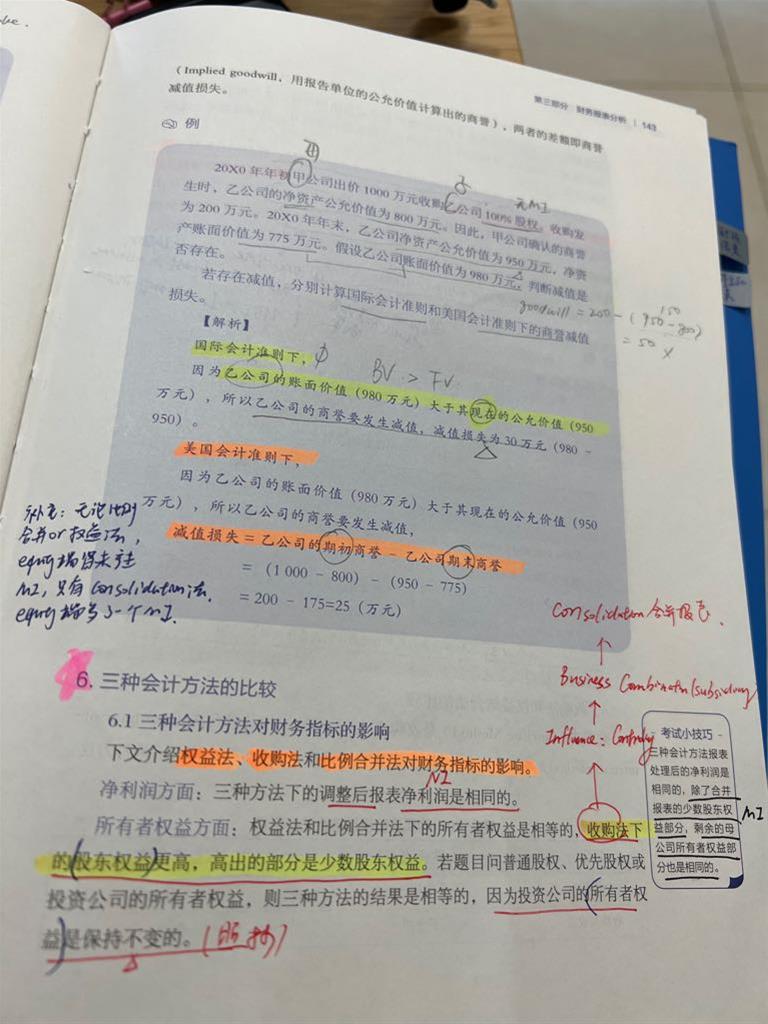 第三部分 财务报表分析 | 143
(Implied goodwill，用报告单位的公允价值计算出的商誉），两者的差额即商誉
减值损失。
例
20X0 年年初甲公司出价 1000 万元收购乙公司 100% 股权。收购发
无MI
生时，乙公司的净资产公允价值为 800 万元。因此，甲公司确认的商誉
为 200 万元。20X0 年年末，乙公司净资产公允价值为 950 万元，净资
产账面价值为 775 万元。假设乙公司账面价值为 980 万元，判断减值是
否存在。
若存在减值，分别计算国际会计准则和美国会计准则下的商誉减值
损失。
goodwill = 200 - (950 - 800)
150
= 50 ×
【解析】
国际会计准则下，
BV > FV
因为乙公司的账面价值（980 万元）大于其现在的公允价值（950
万元），所以乙公司的商誉要发生减值，减值损失为 30 万元（980 -
950）。
美国会计准则下，
因为乙公司的账面价值（980 万元）大于其现在的公允价值（950
万元），所以乙公司的商誉要发生减值，
减值损失 = 乙公司的期初商誉 - 乙公司期末商誉
=（1 000 - 800）-（950 - 775）
= 200 - 175=25（万元）
补充：无论比例
合并or权益法，
MI，只有Consolidation法，
Consolidation 合并报表.
Business Combination (subsidiary
Influence: Controlling
6. 三种会计方法的比较
6.1 三种会计方法对财务指标的影响
下文介绍权益法、收购法和比例合并法对财务指标的影响。
NI
净利润方面：三种方法下的调整后报表净利润是相同的。
所有者权益方面：权益法和比例合并法下的所有者权益是相等的，收购法下
的股东权益更高，高出的部分是少数股东权益。若题目问普通股权、优先股权或
投资公司的所有者权益，则三种方法的结果是相等的，因为投资公司的所有者权
益是保持不变的。
考试小技巧
三种会计方法报表
处理后的净利润是
相同的，除了合并
报表的少数股东权
MI
益部分，剩余的母
公司所有者权益部
分也是相同的。